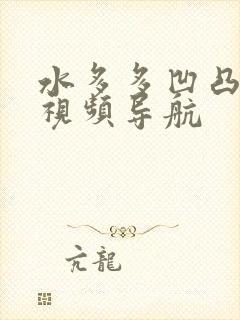 水多多凹凸
視頻导航
亢龍